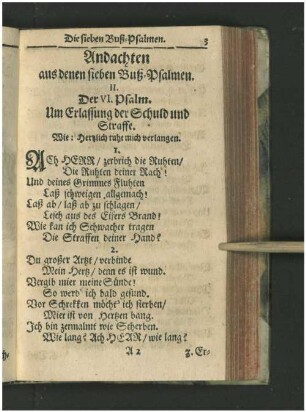 Die sieben Buß-Psalmen. 3
Andachten
aus denen sieben Buß-Psalmen.
II.
Der VI. Psalm.
Um Erlassung der Schuld und
Straffe.
Wie: Hertzlich thut mich verlangen.
1.
ACh HERR/ zerbrich die Ruhten/
Die Ruhten deiner Rach!
Und deines Grimmes Fluhten
Laß schweigen allgemach!
Laß ab/ laß ab zu schlagen/
Lesch aus des Eifers Brand!
Wie kan ich Schwacher tragen
Die Straffen deiner Hand?
2.
Du großer Artzt/ verbinde
Mein Hertz/ denn es ist wund.
Vergib mier meine Sünde!
So werd' ich bald gesund.
Vor Schrekken möcht' ich sterben/
Mier ist von Hertzen bang.
Ich bin zermalmt wie Scherben.
Wie lang? Ach HERR/ wie lang?
A 2 3. Er-